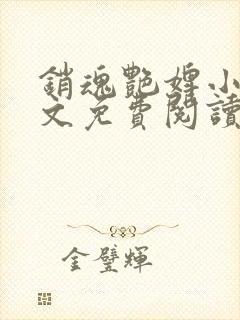 銷魂艷婢小
文免費閱讀
金璧輝